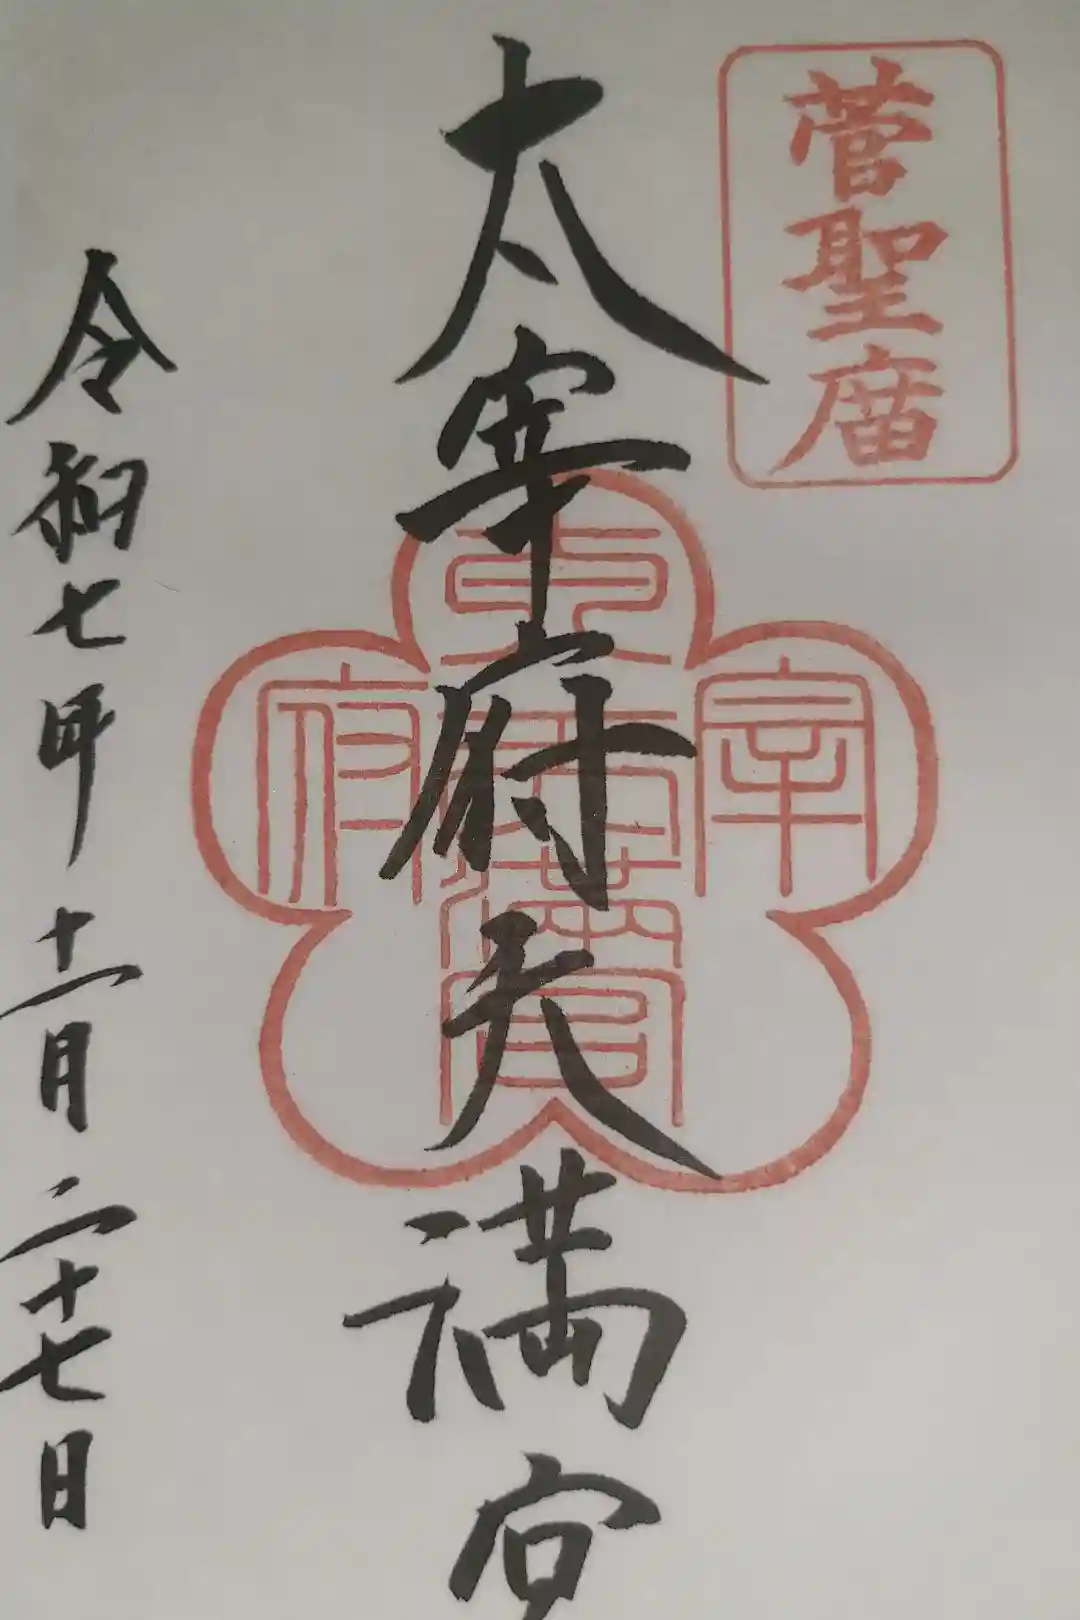 菅聖庿
太宰府天満宮
太宰府天満宮
令和七年十一月二十七日